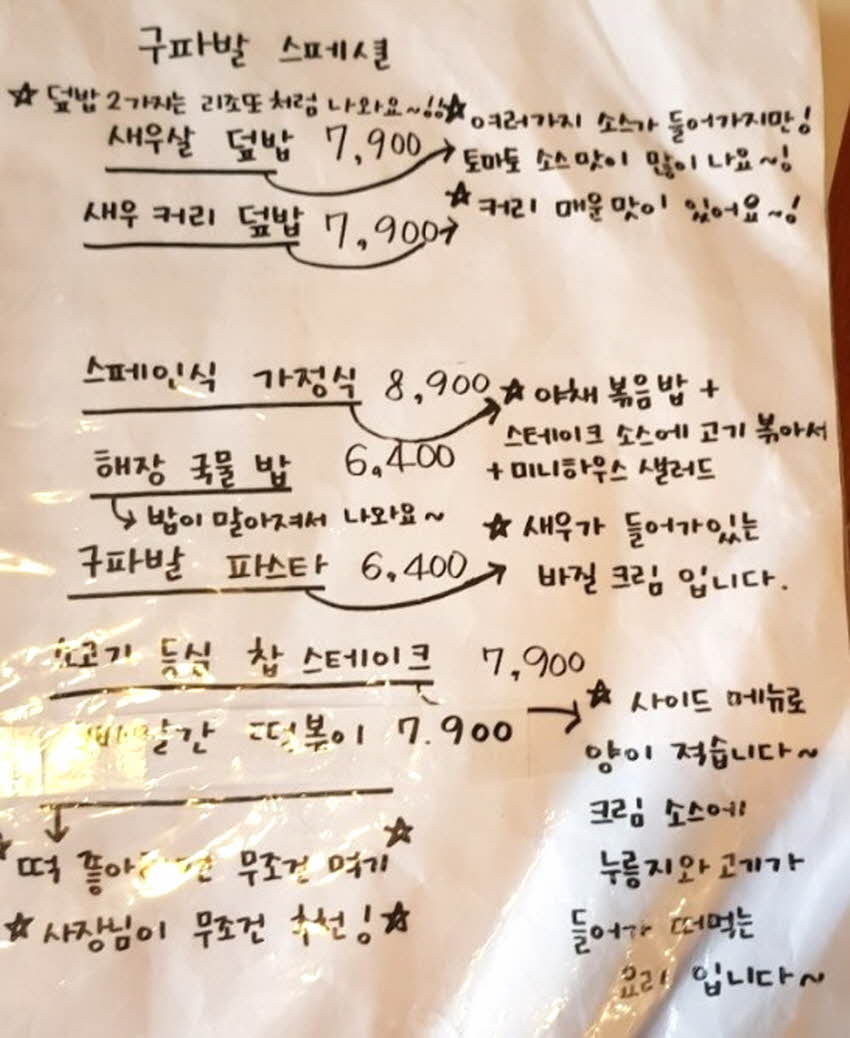 구파발 스페셜
☆ 덮밥 2가지는 리조또 처럼 나와요~!!
새우살 덮밥 7,900
☆ 여러가지 소스가 들어가지만!
토마토 소스맛이 많이 나요~!
새우 커리 덮밥 7,900
☆ 커리 매운맛이 있어요~!
스페인식 가정식 8,900
☆ 야채 볶음밥 +
스테이크 소스에 고기 볶아서
+ 미니하우스 샐러드
해장 국물 밥 6,400
밥이 말아져서 나와요~
구파발 파스타 6,400
☆ 새우가 들어가있는
바질 크림 입니다.
소고기 등심 찹 스테이크 7,900
☆ 사이드 메뉴로
양이 적습니다~
크림 소스에
누룽지와 고기가
들어가 떠먹는
요리 입니다~
떡볶이 7.900
☆ 떡 무조건 먹기 ☆
☆ 사장님이 무조건 추천! ☆